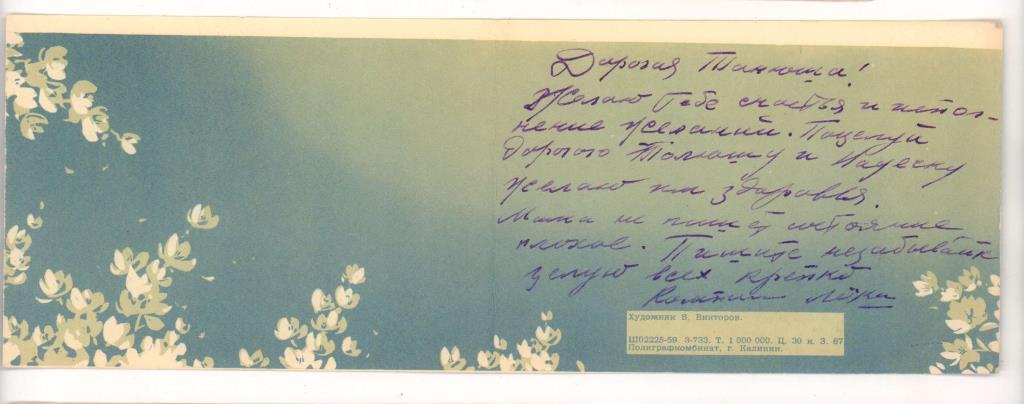 Дорогая Танюша!
Желаю тебе счастья и испол-
нение желаний. Поцелуй
дорогого Толюшу и
желаю им здоровья.
Мама не пишет состояние
плохое. Пишите незабывайте
целую всех крепко
Художник В. Викторов.
Ш02225-59. З-733. Т. 1 000 000. Ц. 30 к. З. 67
Полиграфкомбинат, г. Калинин.